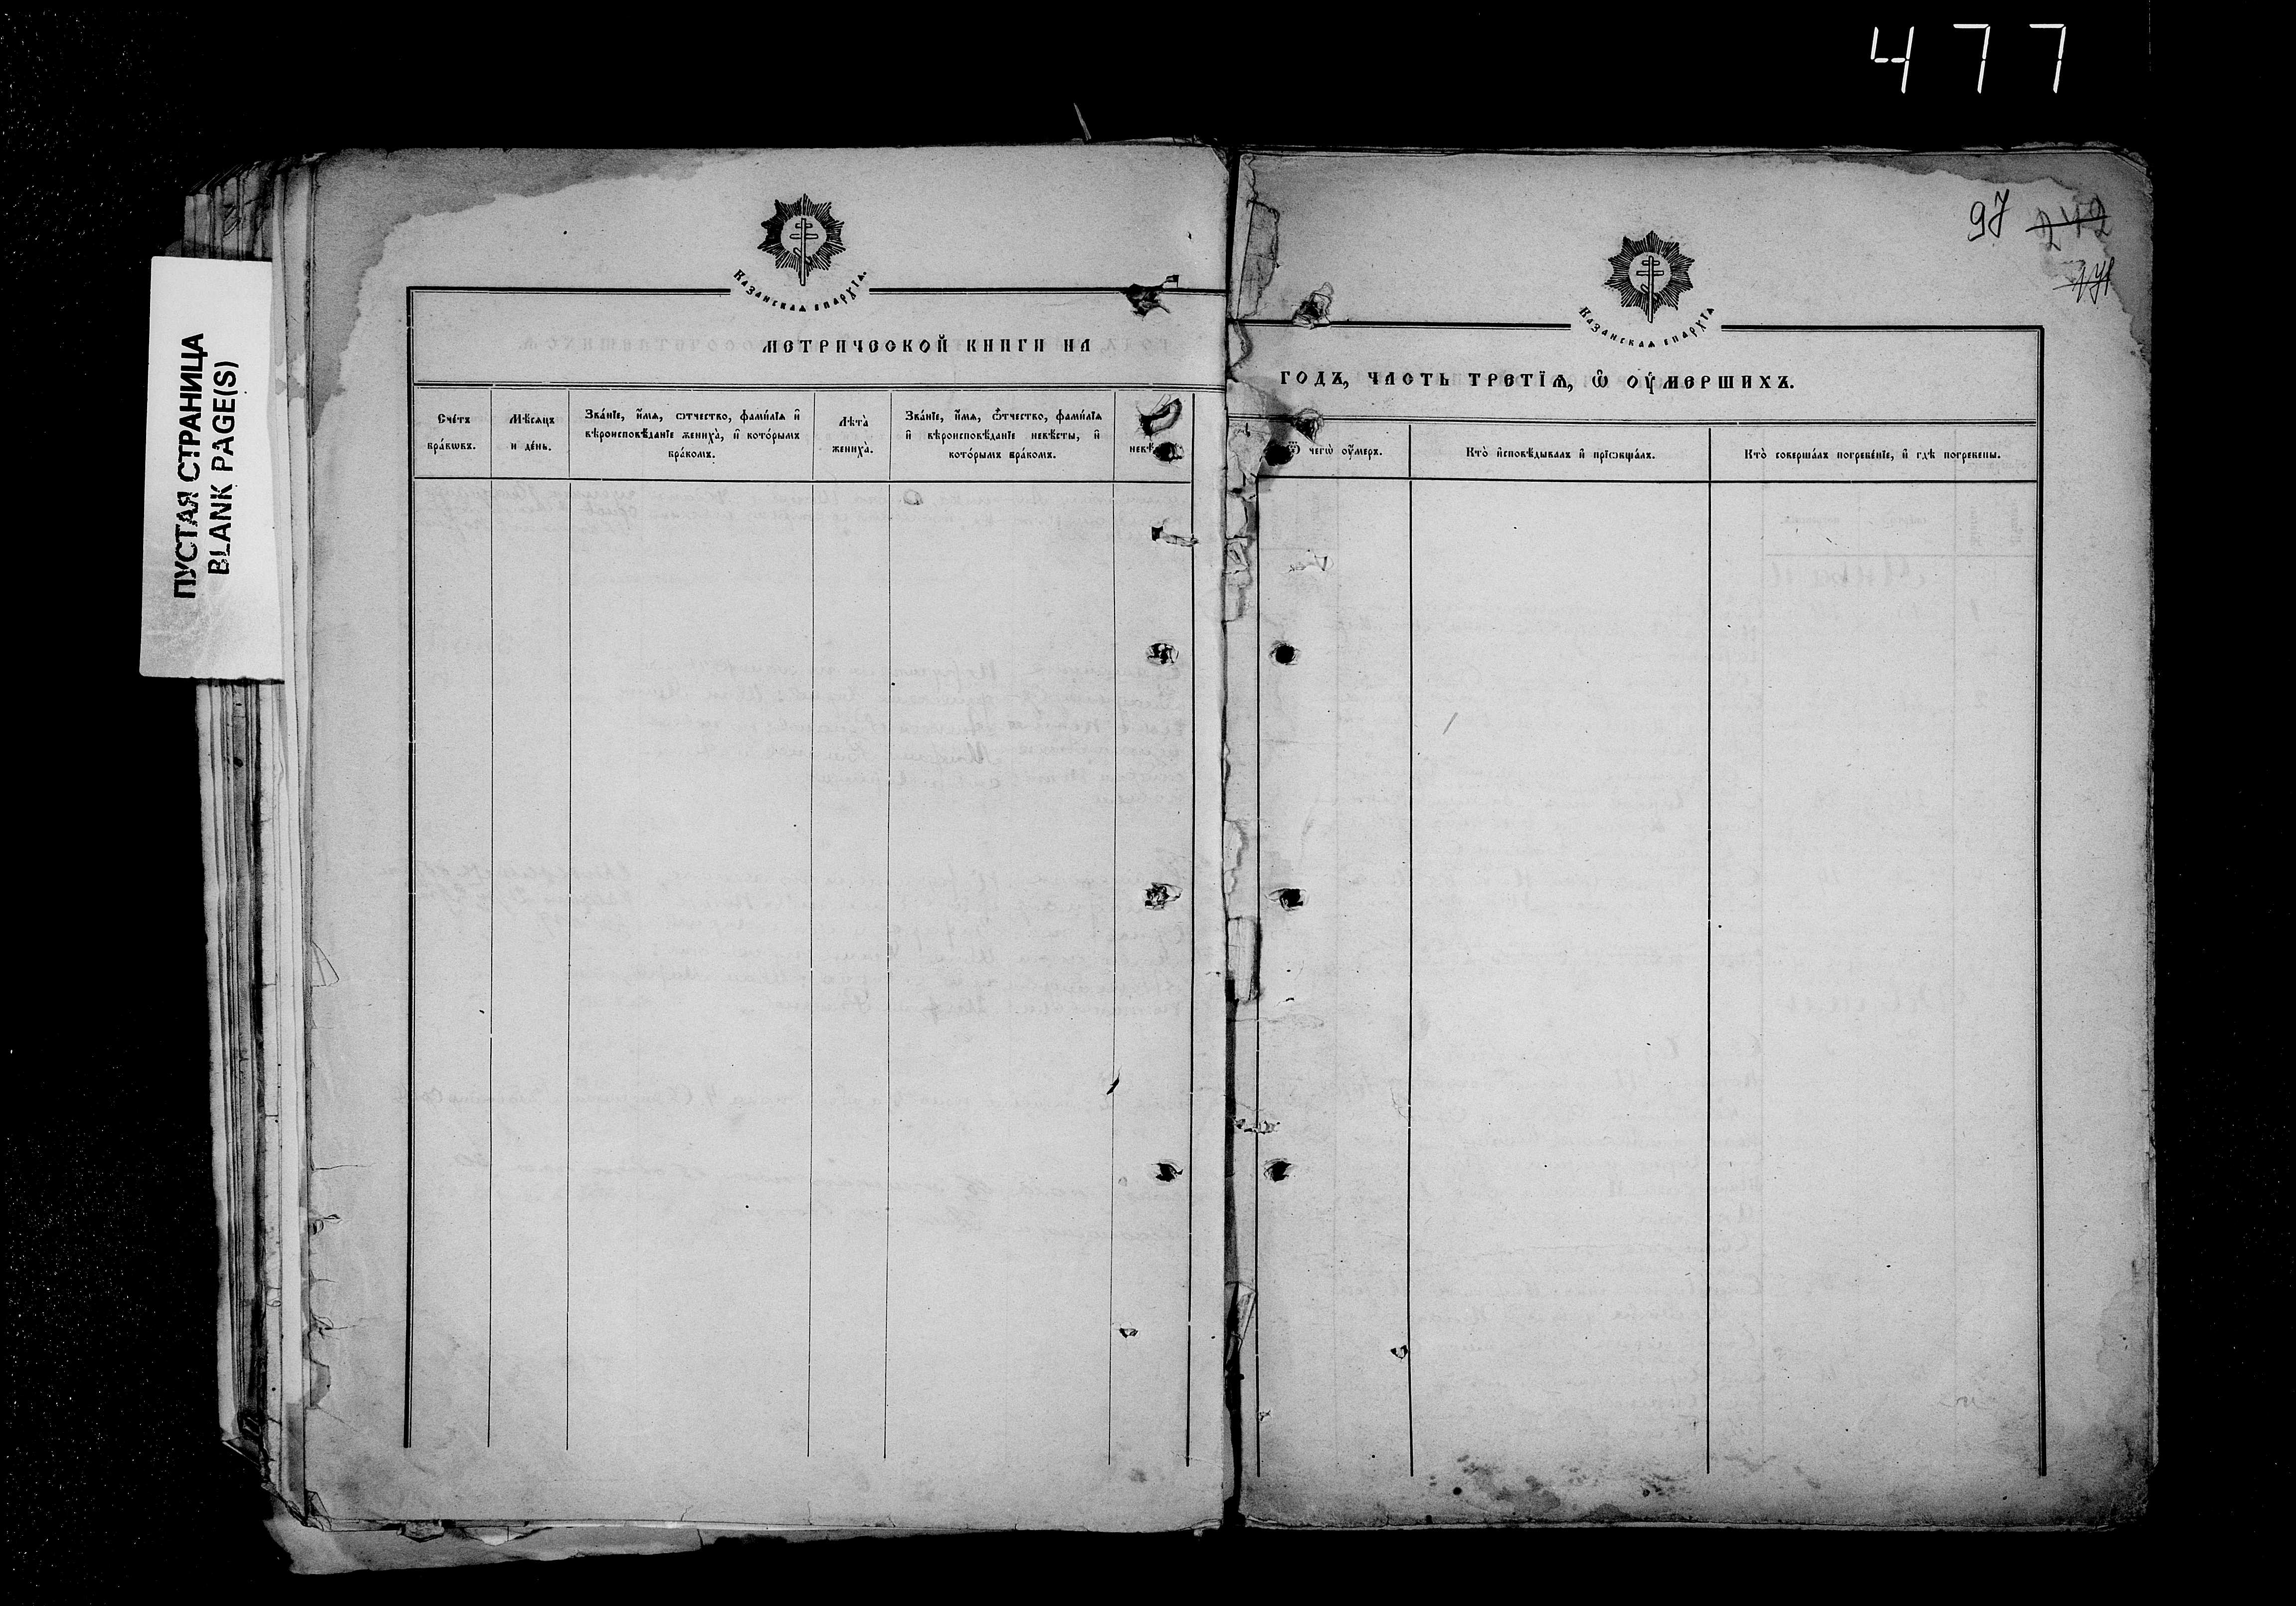 477
ПУСТАЯ СТРАНИЦА
BLANK PAGE(S)
Казанскаѧ епархїѧ.
МЕТРИЧЕСКОЙ КНИГИ НА
Сче́тъ бра́кѡвъ.
Мѣ́сѧцъ и де́нь.
Зва́нїе, и҆́мѧ, ѻтчество, фами́лїѧ и҆ вѣроисповѣ́данїе жениха̀, и҆ кото́рымъ бра́комъ.
Лѣта̀ жениха̀.
Зва́нїе, и҆́мѧ, ѻ҆́тчество, фами́лїѧ и҆ вѣроисповѣ́данїе невѣ́сты, и҆ кото́рымъ бра́комъ.
невѣ́
97 242
Казанскаѧ епархїѧ
ГОДЪ, ЧАСТЬ ТРЕТЇѦ, Ѡ ОУ҆МЕРШИХЪ.
Ѿ чегѡ̀ оу҆́меръ.
Кто̀ и҆сповѣ́дывалъ и҆ прїѡбща́лъ.
Кто̀ соверша́лъ погребе́нїе, и҆ гдѣ̀ погребены.